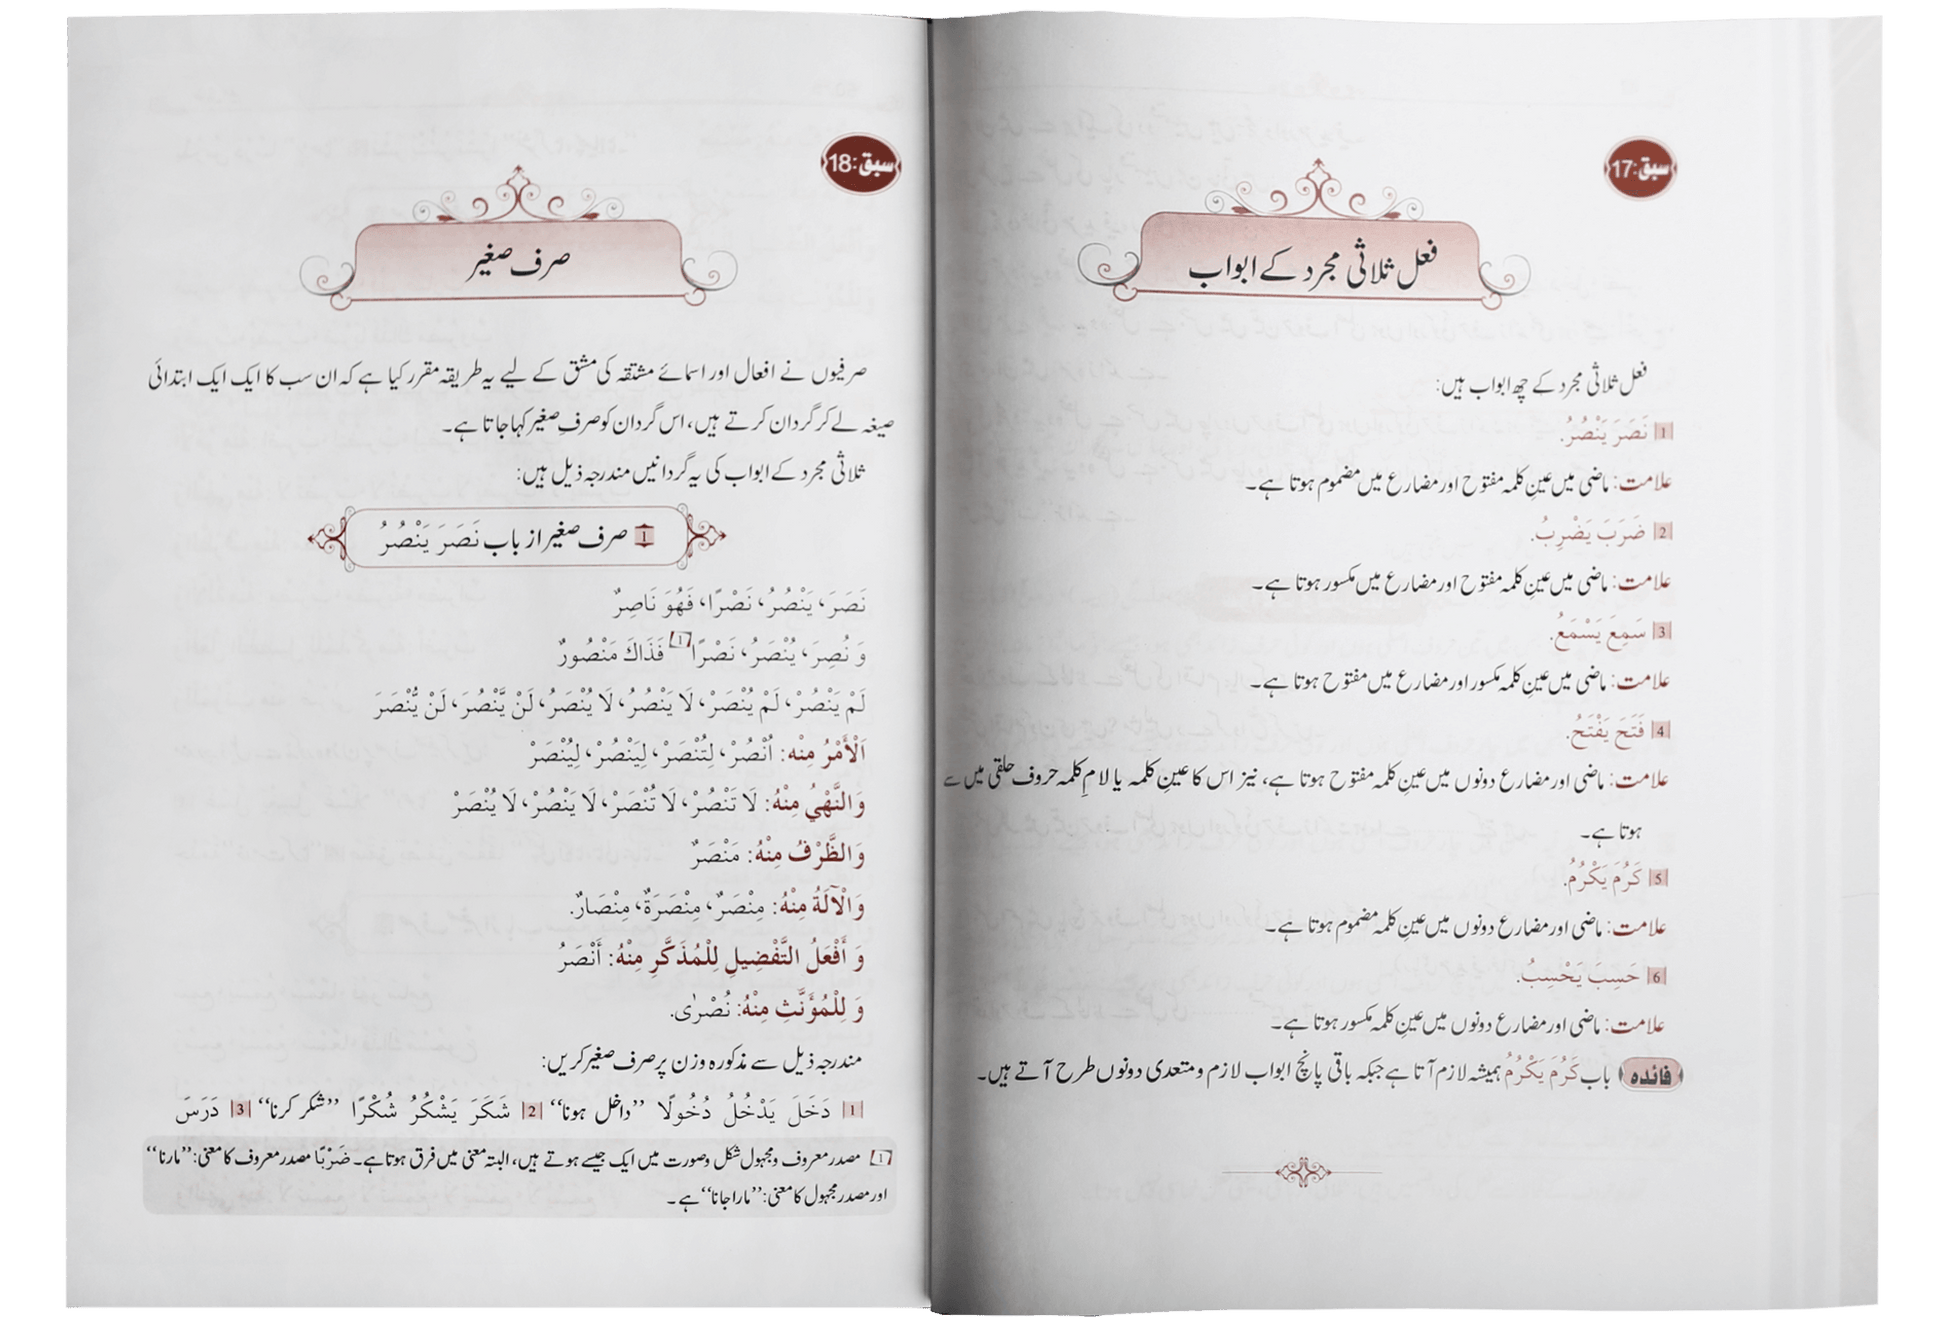 سبق:17
فعل ثلاثی مجرد کے ابواب
فعل ثلاثی مجرد کے چھ ابواب ہیں:
1 نَصَرَ يَنْصُرُ.
علامت: ماضی میں عینِ کلمہ مفتوح اور مضارع میں مضموم ہوتا ہے۔
2 ضَرَبَ يَضْرِبُ.
علامت: ماضی میں عینِ کلمہ مفتوح اور مضارع میں مکسور ہوتا ہے۔
3 سَمِعَ يَسْمَعُ.
علامت: ماضی میں عینِ کلمہ مکسور اور مضارع میں مفتوح ہوتا ہے۔
4 فَتَحَ يَفْتَحُ.
علامت: ماضی اور مضارع دونوں میں عینِ کلمہ مفتوح ہوتا ہے، نیز اس کا عینِ کلمہ یا لامِ کلمہ حروف حلقی میں سے
ہوتا ہے۔
5 كَرُمَ يَكْرُمُ.
علامت: ماضی اور مضارع دونوں میں عینِ کلمہ مضموم ہوتا ہے۔
6 حَسِبَ يَحْسِبُ.
علامت: ماضی اور مضارع دونوں میں عینِ کلمہ مکسور ہوتا ہے۔
فائدہ باب كَرُمَ يَكْرُمُ ہمیشہ لازم آتا ہے جبکہ باقی پانچ ابواب لازم و متعدی دونوں طرح آتے ہیں۔
سبق:18
صرف صغیر
صرفیوں نے افعال اور اسمائے مشتقہ کی مشق کے لیے یہ طریقہ مقرر کیا ہے کہ ان سب کا ایک ایک ابتدائی
صیغہ لے کر گردان کرتے ہیں، اس گردان کو صرفِ صغیر کہا جاتا ہے۔
ثلاثی مجرد کے ابواب کی یہ گردانیں مندرجہ ذیل ہیں:
1 صرف صغیر از باب نَصَرَ يَنْصُرُ
نَصَرَ، يَنْصُرُ، نَصْرًا، فَهُوَ نَاصِرٌ
وَ نُصِرَ، يُنْصَرُ، نَصْرًا [1] فَذَاكَ مَنْصُورٌ
لَمْ يَنْصُرْ، لَمْ يُنْصَرْ، لَا يَنْصُرُ، لَا يُنْصَرُ، لَنْ يَّنْصُرَ، لَنْ يُّنْصَرَ
اَلْأَمْرُ مِنْه: اُنْصُرْ، لِتُنْصَرْ، لِيَنْصُرْ، لِيُنْصَرْ
وَالنَّهْيُ مِنْهُ: لَا تَنْصُرْ، لَا تُنْصَرْ، لَا يَنْصُرْ، لَا يُنْصَرْ
وَالظَّرْفُ مِنْهُ: مَنْصَرٌ
وَالْآلَةُ مِنْهُ: مِنْصَرٌ، مِنْصَرَةٌ، مِنْصَارٌ.
وَ أَفْعَلُ التَّفْضِيلِ لِلْمُذَكَّرِ مِنْهُ: أَنْصَرُ
وَ لِلْمُؤَنَّثِ مِنْهُ: نُصْرٰى.
مندرجہ ذیل سے مذکورہ وزن پر صرف صغیر کریں:
1 دَخَلَ يَدْخُلُ دُخُولًا ”داخل ہونا“ 2 شَكَرَ يَشْكُرُ شُكْرًا ”شکر کرنا“ 3 دَرَسَ
[1] مصدر معروف و مجہول شکل و صورت میں ایک جیسے ہوتے ہیں، البتہ معنی میں فرق ہوتا ہے۔ ضَرْبًا مصدر معروف کا معنی: ”مارنا“
اور مصدر مجہول کا معنی: ”مارا جانا“ ہے۔